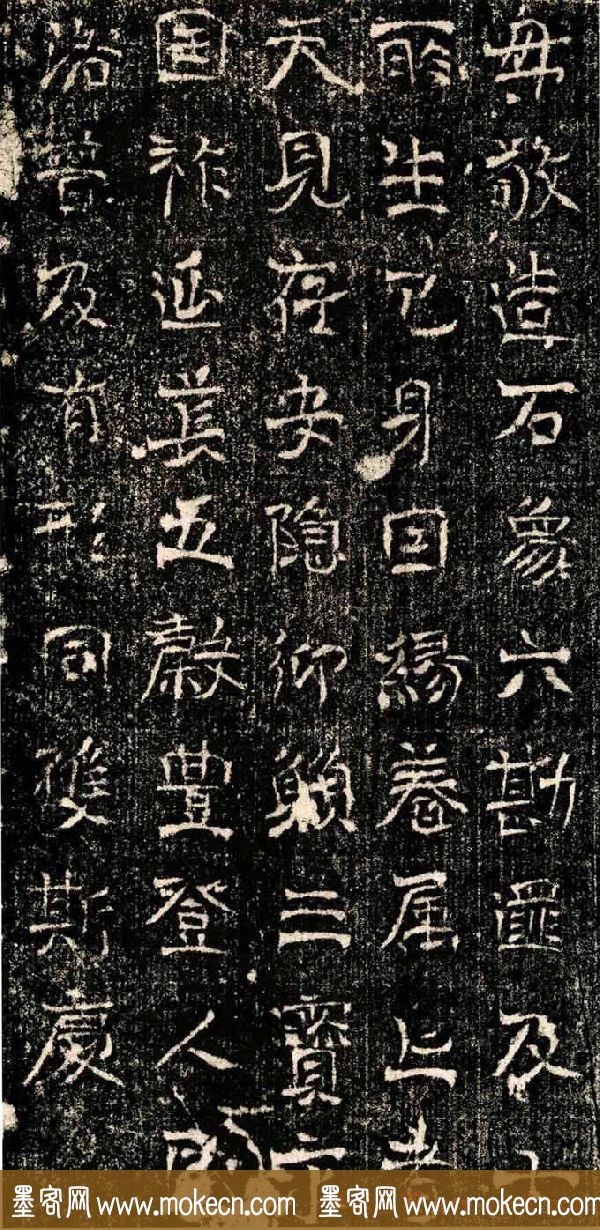 母敬造石象六勘區及
所生己身因緣眷属上者
天見在安隱仰願三寶
国祚延長五穀豐登人
洛普及有形同獲斯慶
墨客网 www.mokecn.com 墨客网 www.mokecn.com